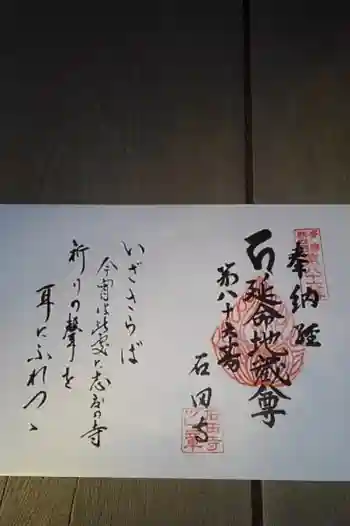 奉納経
延命地蔵尊
第八十六番
石田寺
いざさらば
今宵は此処に志度の寺
祈りの聲を
耳にふれつゝ